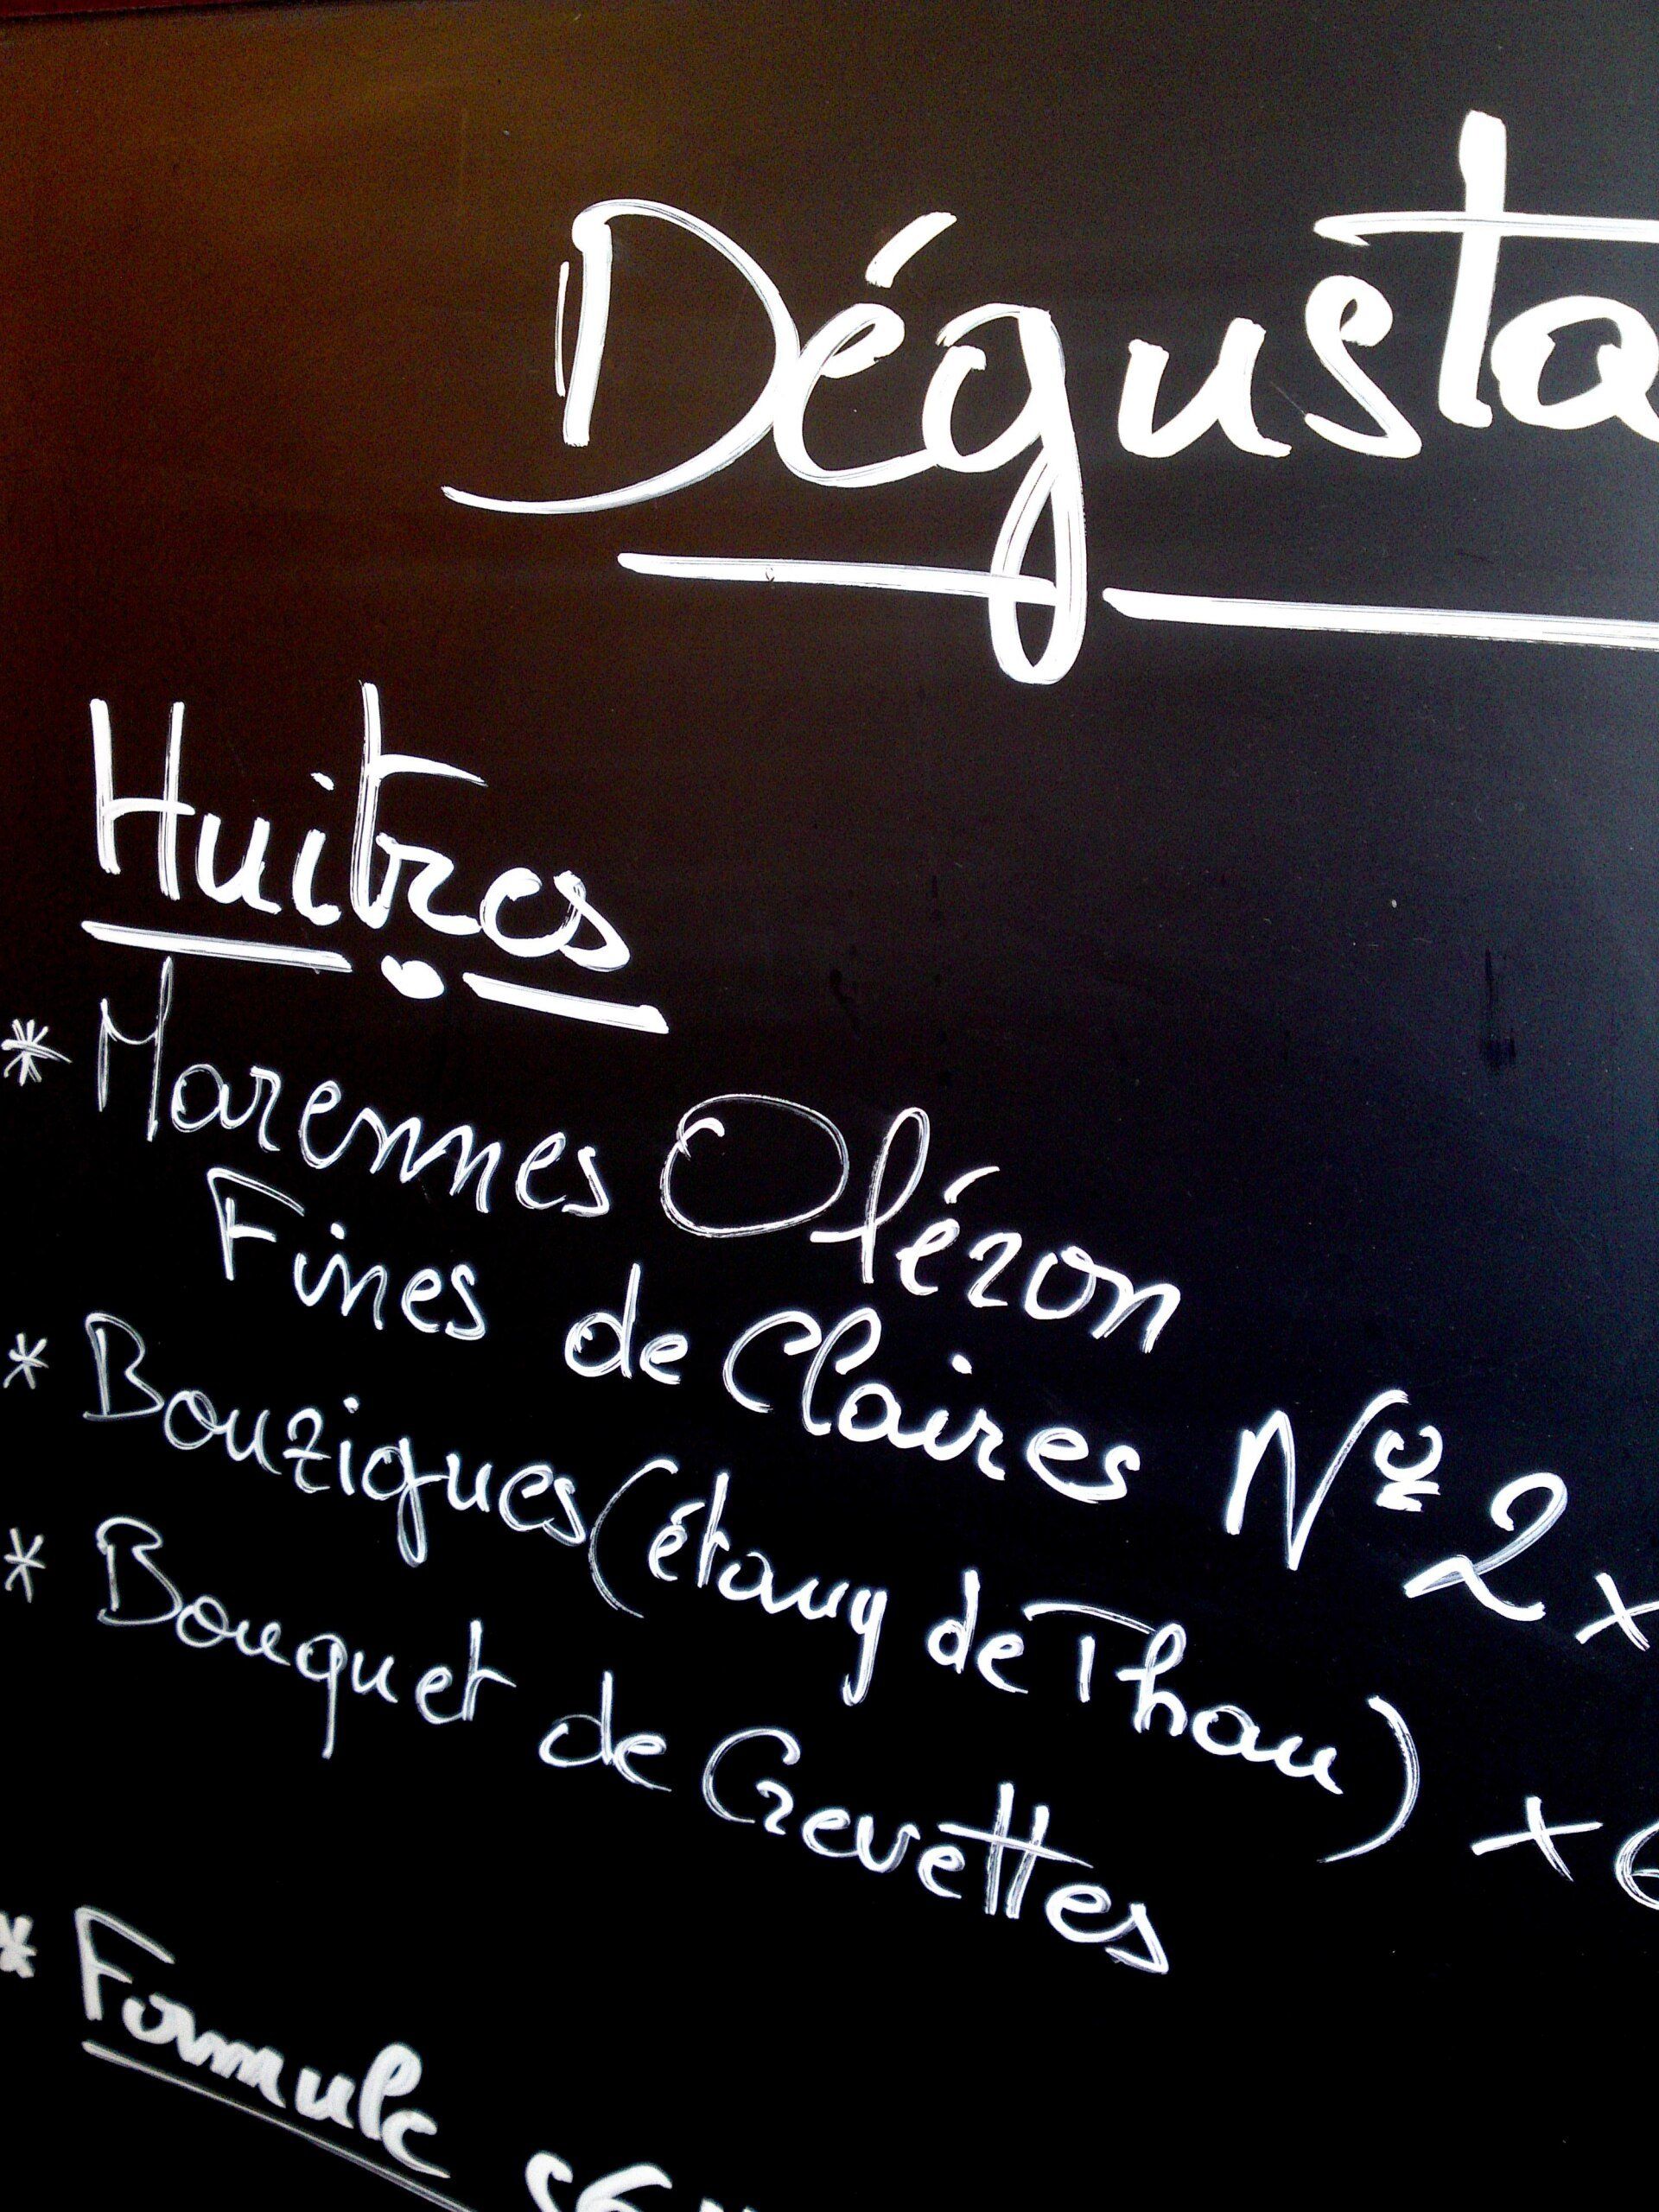 Dégusta
Huitres
* Marennes Oléron
Fines de Claires Nº 2 x
* Bouzigues (étang de Thau) x 6
* Bouquet de Crevettes
* Formule